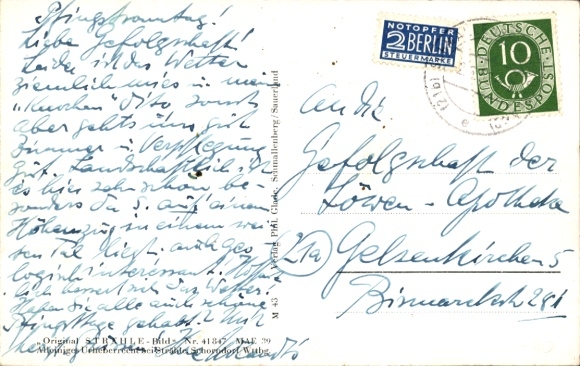 Pfingstsonntag!
Liebe Gefolgschaft!
Leider ist das Wetter
ziemlich mies u. mein
aber gehts uns gut
Zimmer u. Verpflegung
gut. Landschaftlich ist
es hier sehr schön be-
sonders da S. auf einem
Höhenzug in einem wei-
ten Tal liegt. auch geo-
logisch interessant. Hoffent-
lich bessert sich das Wetter.
Haben Sie alle auch schöne
Pfingsttage gehabt? Mit
herzl. Grüssen
„Original STRÄHLE-Bild" Nr. 41847 MAE 39
Alleiniges Urheberrecht bei Strähle, Schorndorf/Wttbg.
M 43 Verlag Phil. Glade, Schmallenberg/Sauerland
NOTOPFER
2 BERLIN
STEUERMARKE
DEUTSCHE
10
BUNDESPOST
An die
Gefolgschaft der
Löwen-Apotheke
(21a) Gelsenkirchen 5
Bismarckstr 281